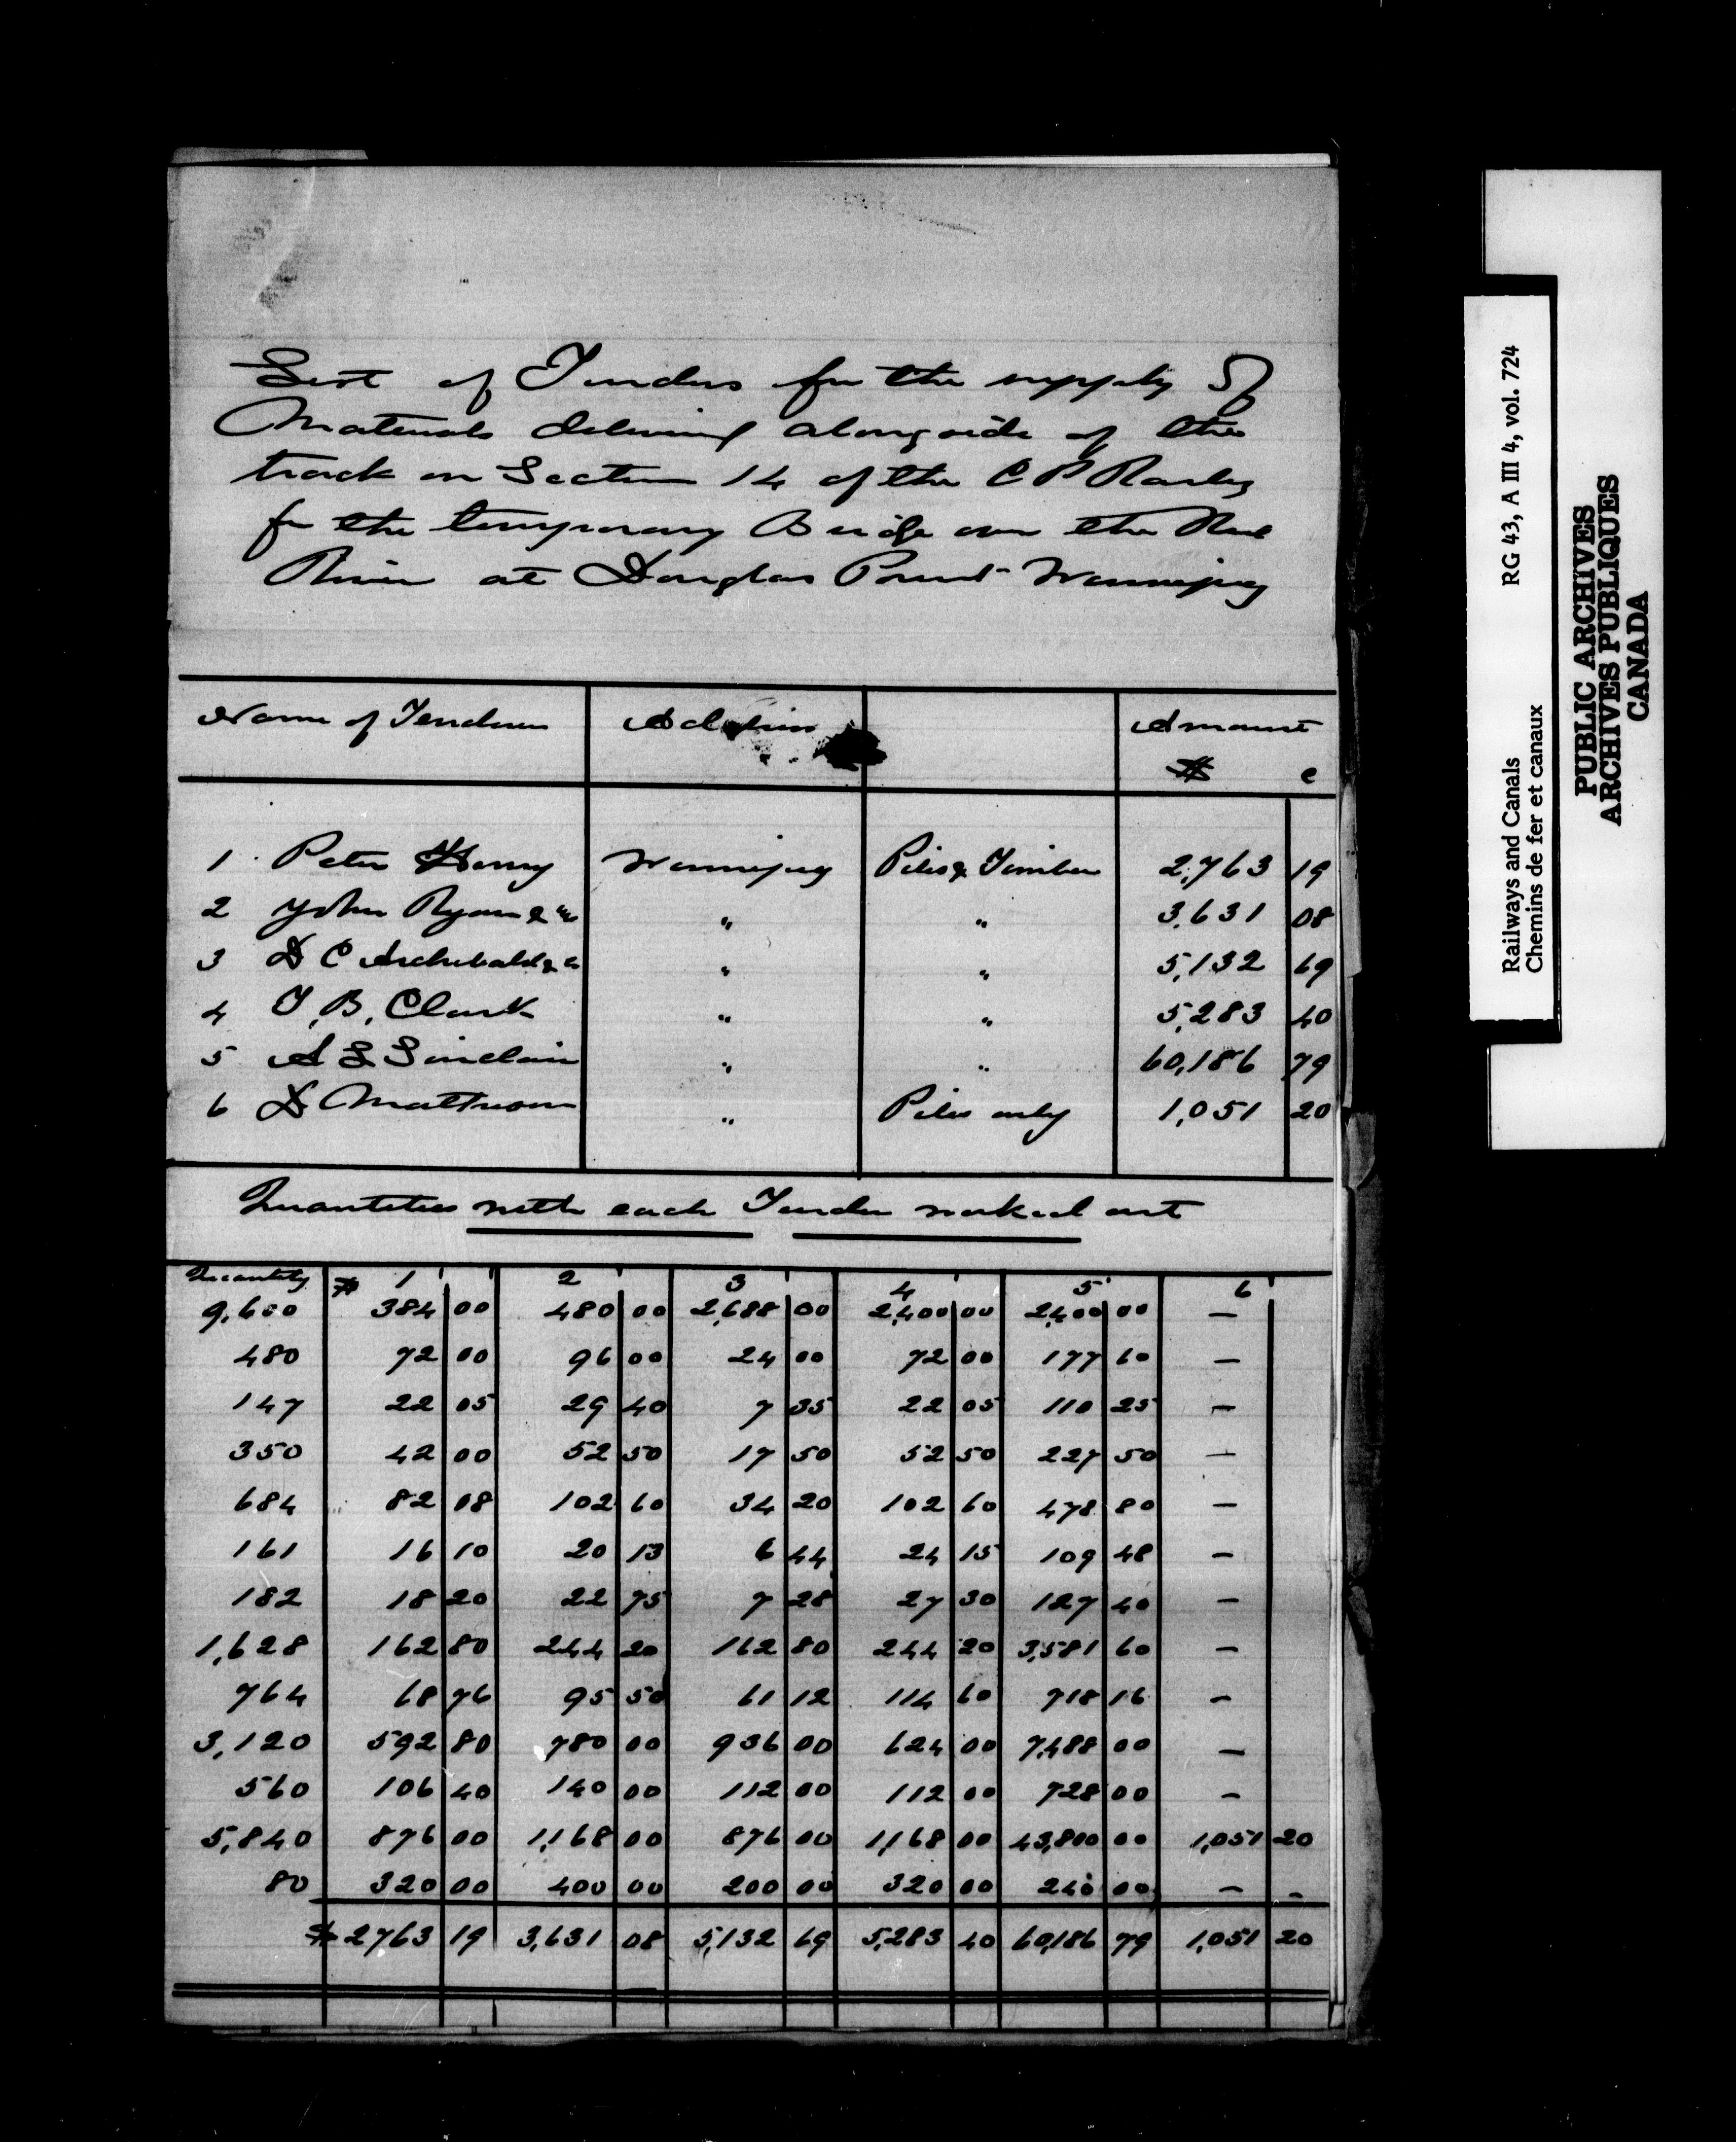 List of Tenders for the supply of
Materials delivered alongside of the
track on Section 14 of the C P Railwy
for the temporary Bridge over the Red
River at Douglas Point Winnipeg
Name of Tenderer Address Amount
$ c
1 Peter Henry Winnipeg Piles & Timber 2,763 19
2 John Ryan & Co " " 3,631 08
3 D C Archibald & Co " " 5,132 69
4 T. B. Clark " " 5,283 40
5 A L Sinclair " " 60,186 79
6 D Mathewson " Piles only 1,051 20
Quantities with each Tender worked out
Quantity $ 1 2 3 4 5 6
9,600 384 00 480 00 2,688 00 2,400 00 2,400 00 —
480 72 00 96 00 24 00 72 00 177 60 —
147 22 05 29 40 7 35 22 05 110 25 —
350 42 00 52 50 17 50 52 50 227 50 —
684 82 08 102 60 34 20 102 60 478 80 —
161 16 10 20 13 6 44 24 15 109 48 —
182 18 20 22 75 7 28 27 30 127 40 —
1,628 162 80 244 20 162 80 244 20 3,581 60 —
764 68 76 95 50 61 12 114 60 718 16 —
3,120 592 80 780 00 936 00 624 00 7,488 00 —
560 106 40 140 00 112 00 112 00 728 00 —
5,840 876 00 1,168 00 876 00 1,168 00 43,800 00 1,051 20
80 320 00 400 00 200 00 320 00 240 00 — -
$ 2763 19 3,631 08 5,132 69 5,283 40 60,186 79 1,051 20
Railways and Canals RG 43, A III 4, vol. 724
Chemins de fer et canaux
PUBLIC ARCHIVES
ARCHIVES PUBLIQUES
CANADA